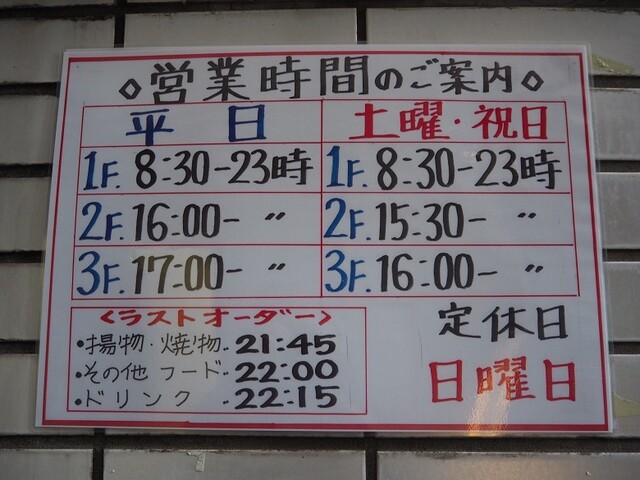 ◇営業時間のご案内◇
平日 土曜・祝日
1F. 8:30-23時 1F. 8:30-23時
2F. 16:00- 〃 2F. 15:30- 〃
3F. 17:00- 〃 3F. 16:00- 〃
<ラストオーダー>
・揚物・焼物-21:45
・その他フード-22:00
・ドリンク-22:15
定休日
日曜日